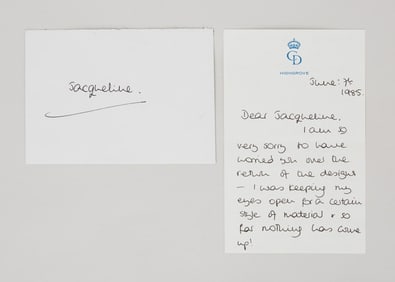 Jacqueline.
CD
HIGHGROVE
June: 7th
1985.
Dear Jacqueline.
I am so
very sorry to have
worried you over the
return of the designs
– I was keeping my
eyes open for a certain
style of material & so
far nothing has come
up!